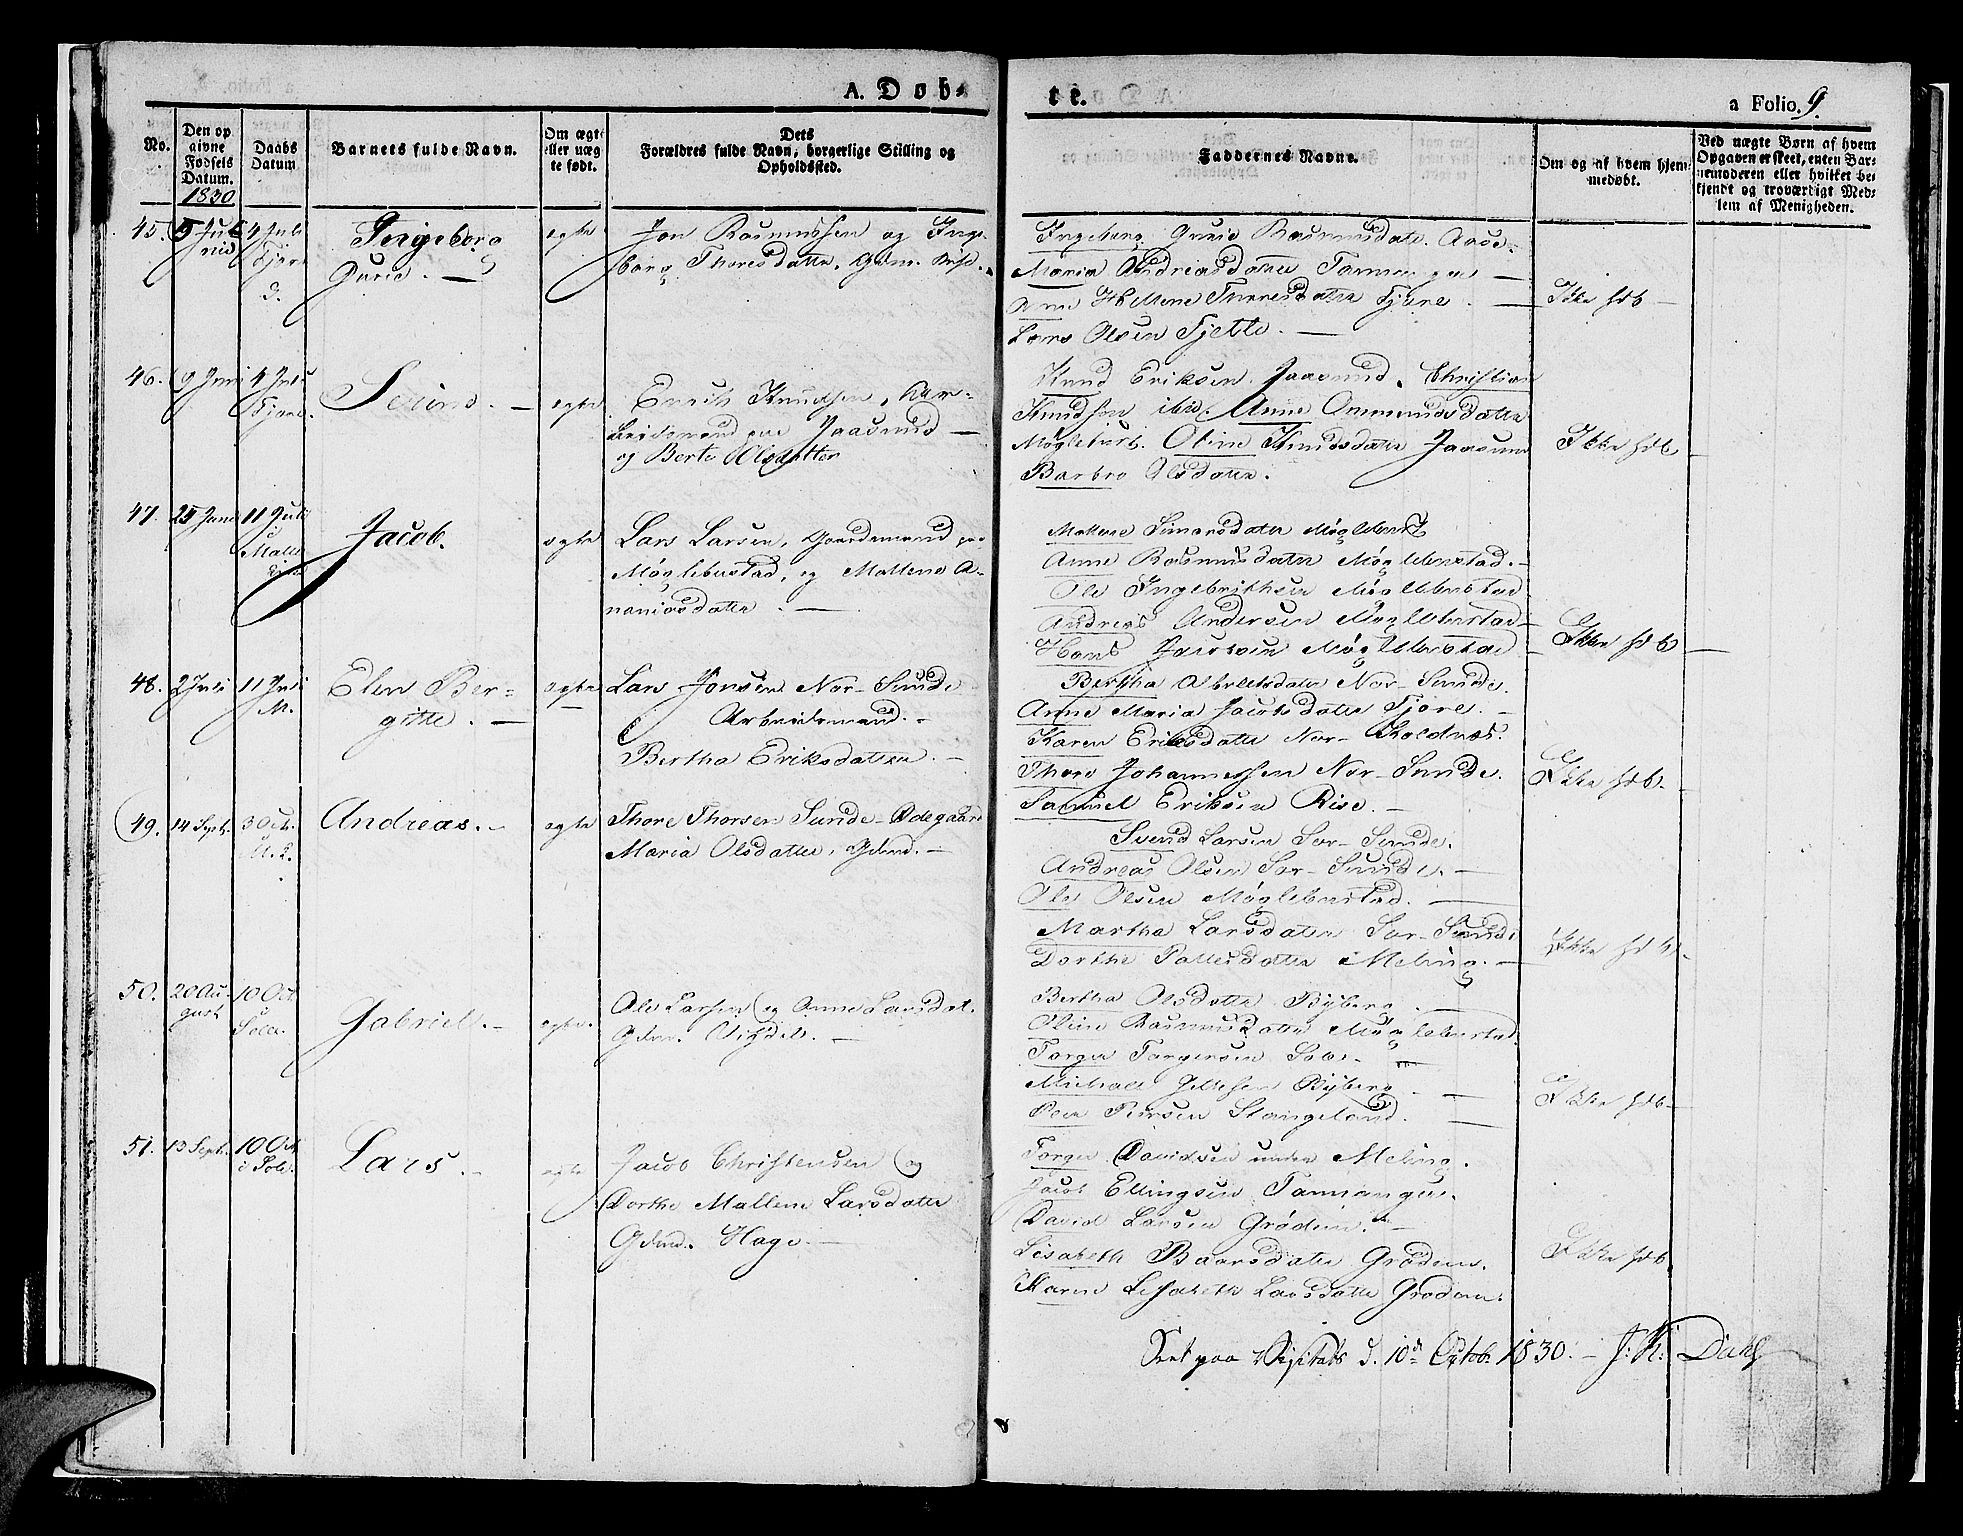 A. Døb-
te.
a Folio. 9.
No.
Den op
givne
Fødsels
Datum.
1830
Daabs
Datum
Barnets fulde Navn.
Om ægte
eller uæg
te født.
Dets
Forældres fulde Navn, borgerlige Stilling og
Opholdssted.
Faddernes Navne.
Om og af hvem hjem-
medøbt.
Ved uægte Børn af hvem
Opgaven er skeet, enten Bar-
nemoderen eller hvilket be-
kjendt og troværdigt Med-
lem af Menigheden.
45.
4 Juli
Ingeborg
Gurie. —
egte
Jon Rasmussen og Inge-
borg Thoresdatter.
Ingeborg Gurie Rasmusdatter.
Maria Andreasdatter Tananger —
Anne Hellene Thoresdatter Fjære. —
Lars Olsen Fjelte. —
Ikke hdb —
46.
9 Juni
4 Juli
Fjære.
Serine. —
egte
Erich Knudsen, Ar-
beidsmand paa Jaasund —
og Berte Olsdatter
Knud Eriksen Jaasund. Christian
Knudsen ibid. Anne Ommundsdatter
Møglebust. Oline Knudsdatter Jaasund
Barbro Olsdatter.
Ikke hdb —
47.
25 Juni
11 Juli
Jacob.
egte
Lars Larsen, Gaardemand paa
Møglebustad, og Mallene A-
naniasdatter. —
Mallene Simonsdatter Møglebust
Anne Rasmusdatter Møglebustad. —
Ole Ingebrithsen Møglebustad
Andreas Andersen Møglebustad —
Hans Jacobsen Møglebustad —
Ikke hdb —
48.
2 Juli
11 Juli
M.
Elen Ber-
gitte. —
egte
Lars Jonsen Nor-Sunde
Arbeidsmand. —
Bertha Eriksdatter. —
Bertha Albretsdatter Nor-Sunde.
Anne Maria Jacobsdatter Fjære. —
Karen Eriksdatter Nor-Koldnæs.
Thore Johannessen Nor-Sunde.
Samuel Eriksen Risa. —
Ikke hdb —
49.
14 Sept.
3 Oct.
Andreas. —
egte
Thore Thorsen Sunde-Ødegaard
Maria Olsdatter, Gdmd. —
Svend Larsen Sør-Sunde.
Andreas Olsen Sør-Sunde. —
Ole Olsen Møglebustad. —
Martha Larsdatter Sør-Sunde
Dorthe Pallesdatter Meling. —
Ikke hdb —
50.
20 Au-
gust
10 Oct.
Sole.
Gabriel. —
egte.
Ole Larsen og Anne Larsdat.
Gdmd. Vigdel. —
Bertha Olsdatter Byberg. —
Oline Rasmusdatter Møglebustad.
Torger Torgersen Sole. —
Michael Jellesen Byberg —
Peer Peersen Stangeland. —
Ikke hdb —
51.
13 Sept.
10 Oct.
i Sole.
Lars. —
egte
Jacob Christensen og
Dorthe Mallene Larsdatter
Gdmd. Hage. —
Torger Davidsen under Meling.
Jacob Ellingsen Tananger.
David Larsen Grødem. —
Lisabeth Baarsdatter Grødem.
Karen Lisabeth Larsdatter Grødem.
Ikke hdb.
Seet paa Visitats d. 10de Octob. 1830. — J. K. Dahl